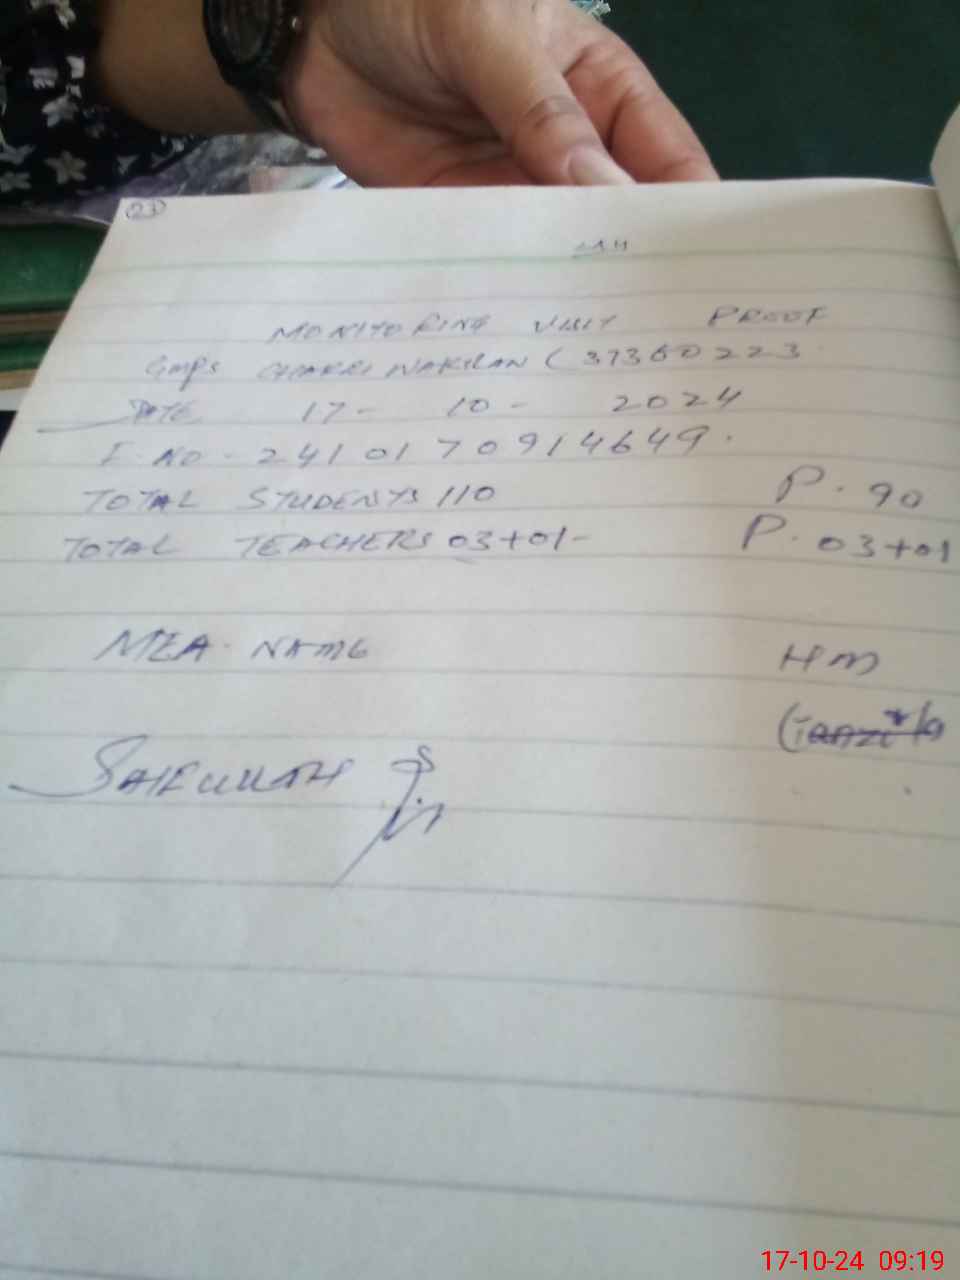 23
MONITORING VISIT PROOF
GMPS CHAKRI WAKILAN (37360223
DATE 17- 10- 2024
I.NO. 2410170914649.
TOTAL STUDENTS 110 P. 90
TOTAL TEACHERS 03+01- P. 03+01
MEA. NAME HM
(Tanzila
SAIFULLAH
17-10-24 09:19